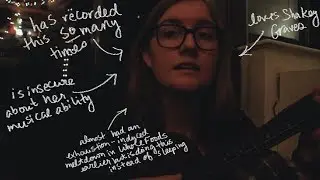 has recorded
this so many
times
is insecure
about her
musical ability
loves Shakey
Graves
almost had an
exhaustion-induced
meltdown in Whole Foods
earlier but is doing this
instead of sleeping